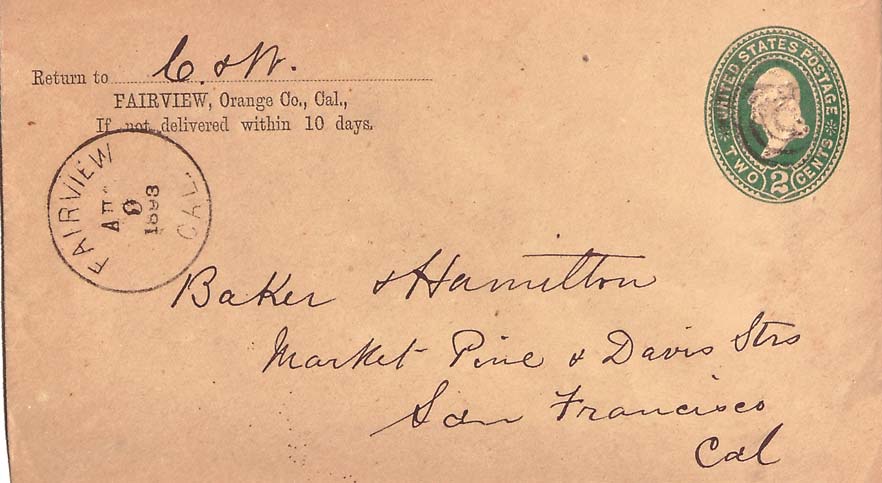 Return to C. & W.
FAIRVIEW, Orange Co., Cal.,
If not delivered within 10 days.
UNITED STATES POSTAGE
TWO 2 CENTS
FAIRVIEW
9
1893
CAL.
Baker & Hamilton
Market Pine & Davis Strs
San Francisco
Cal